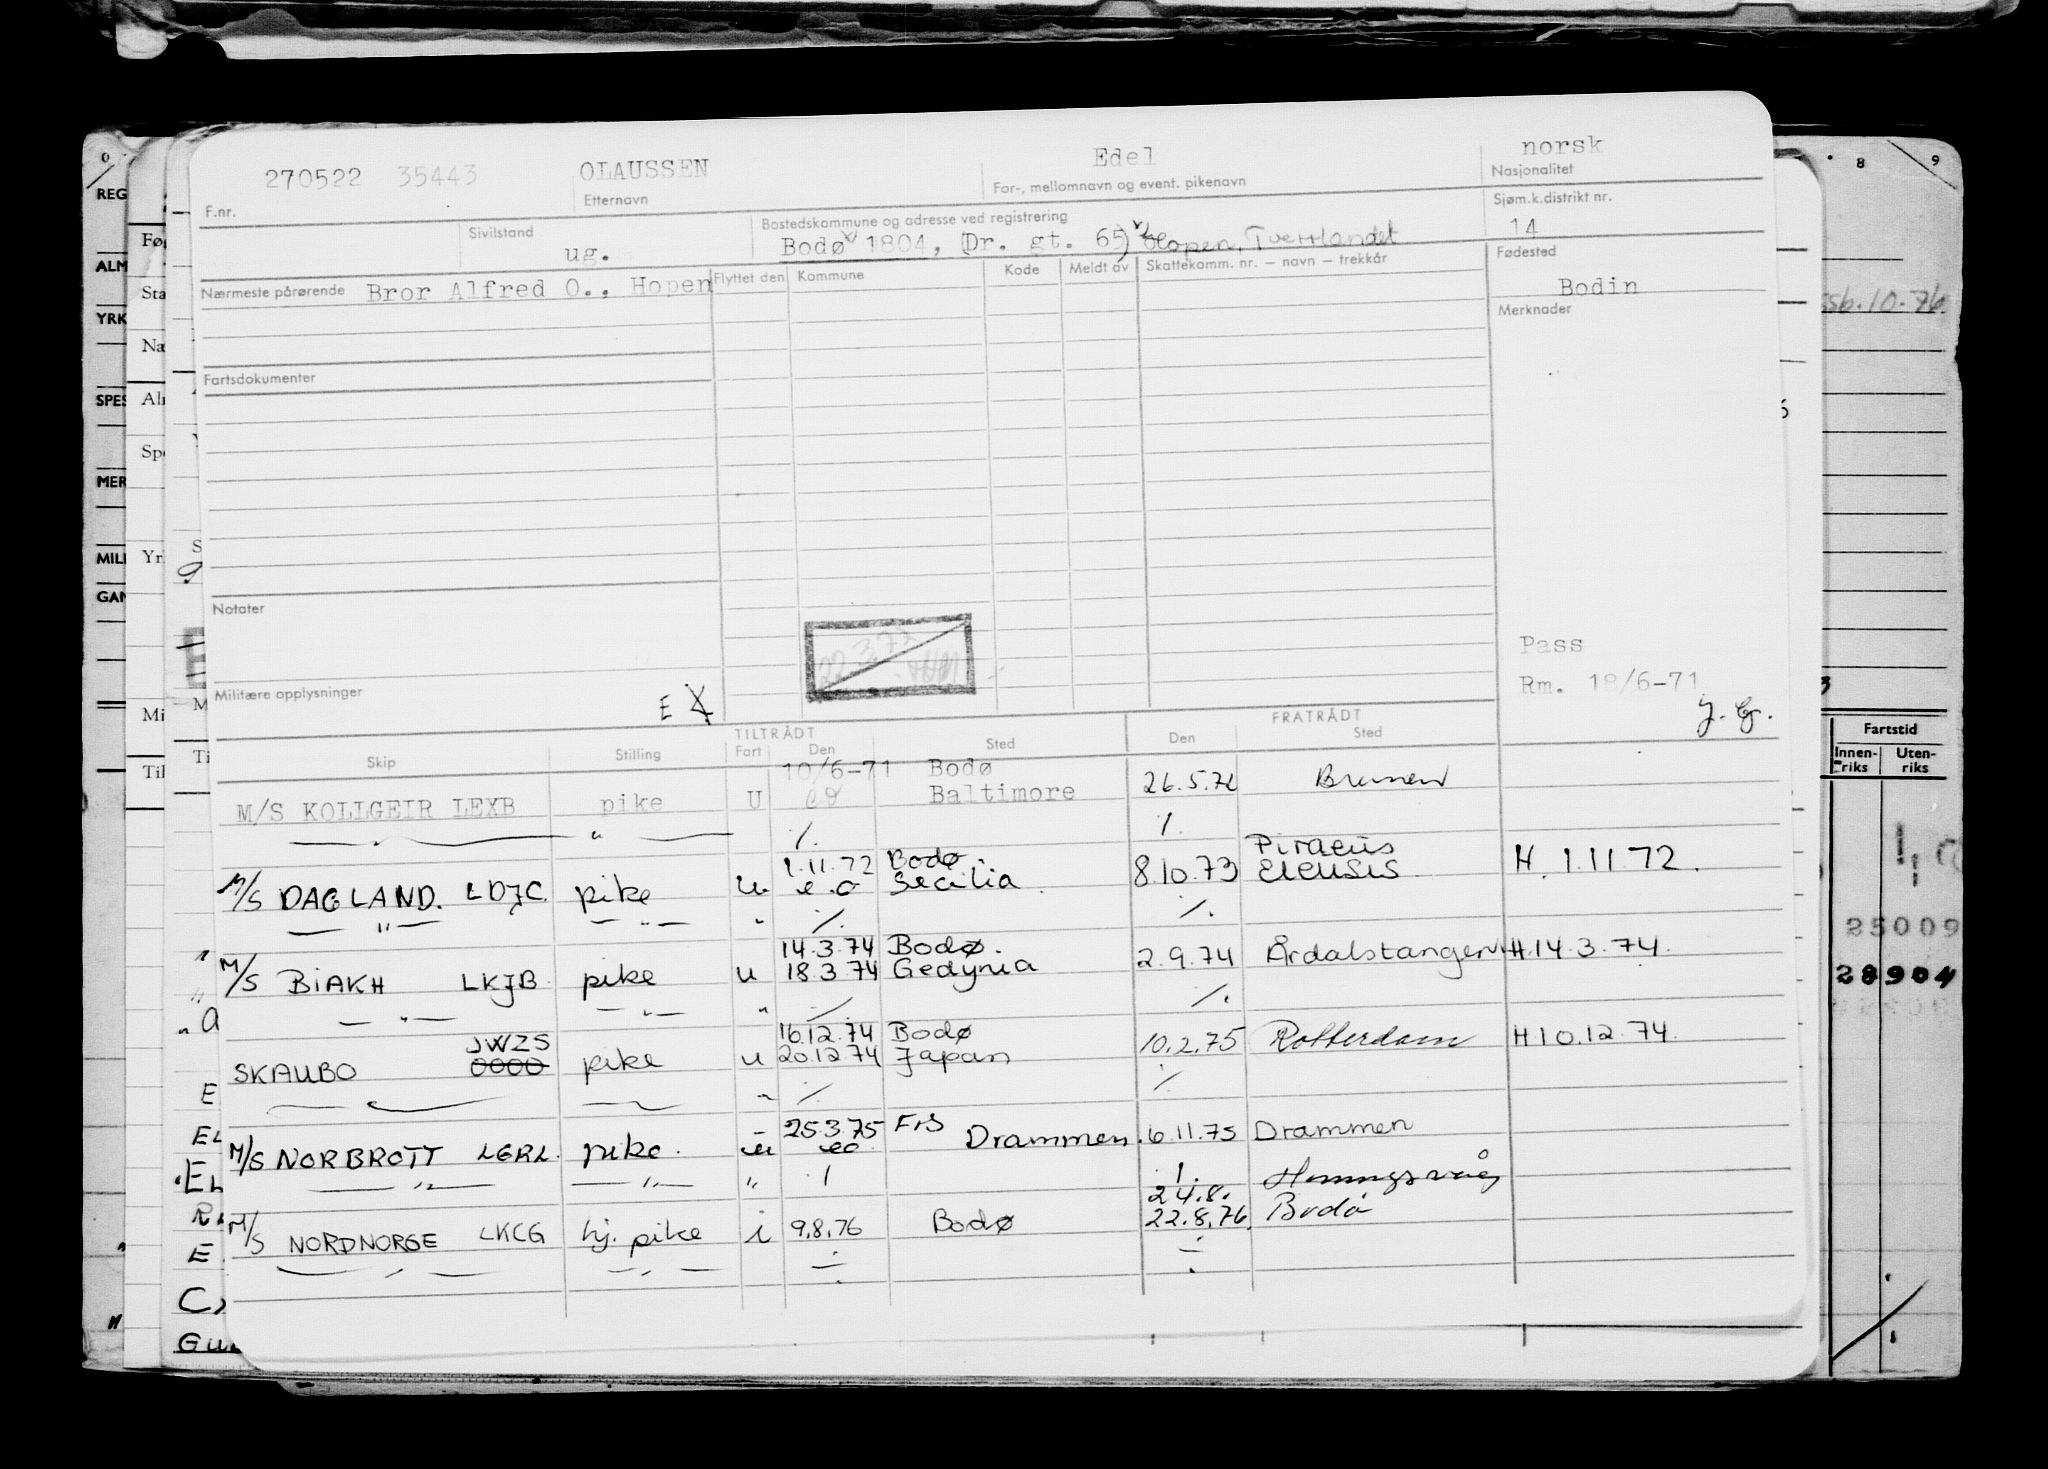 270522 35443 OLAUSSEN Edel norsk
F.nr. Etternavn For-, mellomnavn og event. pikenavn Nasjonalitet
Sivilstand Bostedskommune og adresse ved registrering Sjøm.k.distrikt nr.
ug. Bodø 1804, (Dr. gt. 65) Hopen, Tverrlandet 14
Nærmeste pårørende Bror Alfred O., Hopen Flyttet den Kommune Kode Meldt av Skattekomm. nr. — navn — trekkår Fødested
Bodin
Merknader
Fartsdokumenter
Notater
Pass
Rm. 18/6-71
Militære opplysninger
E
TILTRÅDT FRATRÅDT
Skip Stilling Fart Den Sted Den Sted
10/6-71 Bodø
M/S KOLLGEIR LEXB pike U Baltimore 26.5.72 Bremen
1.11.72 Bodø Piraeus
M/S DAGLAND. LDJC. pike u. e.o Secilia 8.10.73 Eleusis H. 1.11.72.
14.3.74 Bodø.
M/S BIAKH LKJB pike u 18.3.74 Gedynia 2.9.74 Årdalstangen H.14.3.74.
JWZS 16.12.74 Bodø
SKAUBO 0000 pike u 20.12.74 Japan 10.2.75 Rotterdam H 10.12.74.
25.3.75 FrS
M/S NORBROTT LERL. pike. u eo Drammen. 6.11.75 Drammen
24.8. Honningsvåg
M/S NORDNORGE LKCG hj. pike i 9.8.76 Bodø 22.8.76. Bodø
0 8 9
REG
ALM
YRK
SPES
MER
MILI
GAN
Fartstid
Innen-riks Uten-riks
25009
28904